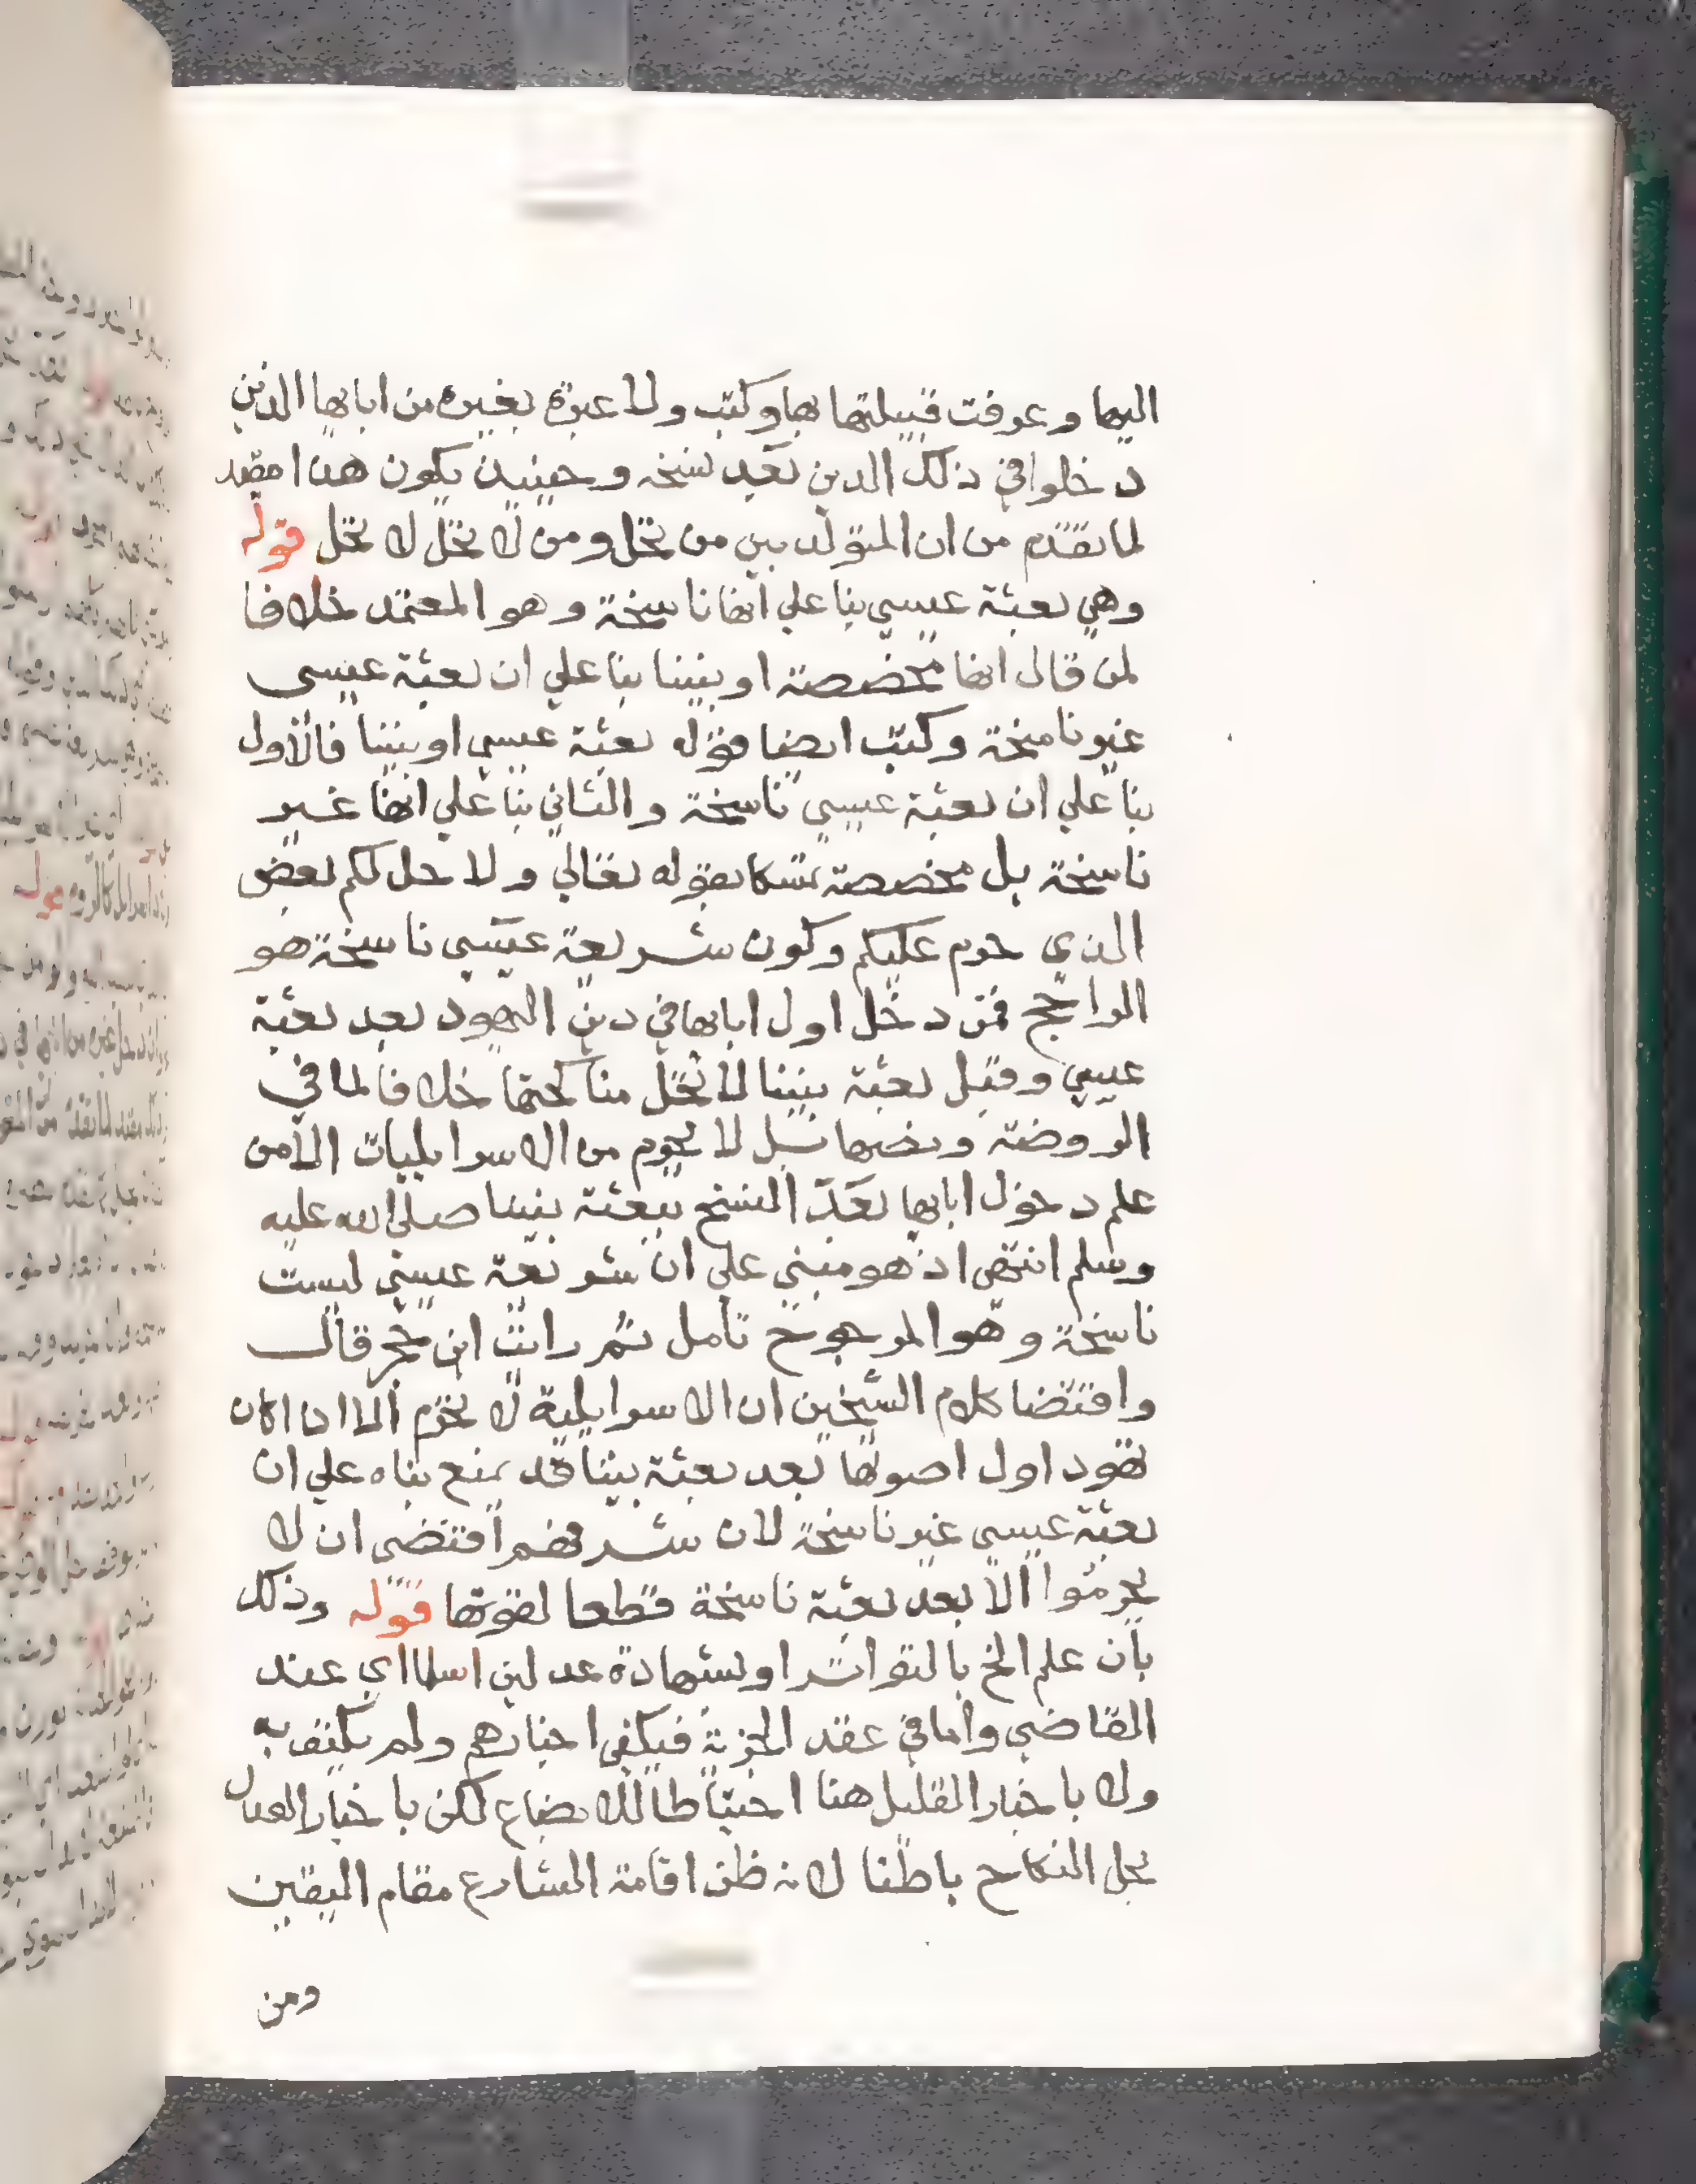 اليها وعرفت قبيلتها بها وكتب ولا عبرة بغيره من ابايها الذين
دخلوا في ذلك الدين بعد نسخه وحينيذ يكون هذا مقيد
لما تقدم من ان المتولد بين من تحل ومن لا تحل لا تحل قوله
وهي بعثة عيسي بنا علي انها ناسخة وهو المعتمد خلافا
لمن قال انها مخصصة او نبينا بنا علي ان بعثة عيسى
غير ناسخة وكتب ايضا قوله بعثة عيسي او نبينا فالأول
بنا علي ان بعثة عيسي ناسخة والثاني بنا علي انها غير
ناسخة بل مخصصة تمسكا بقوله تعالي ولا حل لكم بعض
الذي حرم عليكم وكون شريعة عيسي ناسخة هو
الراجح فمن دخل اول ابايها في دين اليهود بعد بعثة
عيسي وقبل بعثة نبينا لا تحل مناكحتها خلافا لما في
الروضة ونصها بل لا يحرم من الاسرايليات الا من
علم دخول ابايها بعد النسخ ببعثة نبينا صلي الله عليه
وسلم انتهي اذ هو مبني علي ان شريعة عيسي ليست
ناسخة وهو المرجوح تامل ثم رايت ابن حجر قال
واقتضا كلام الشيخين ان الاسرايلية لا تحرم الا ان كان
تهود اول اصولها بعد بعثة نبينا قد يمنع بناه علي ان
بعثة عيسي غير ناسخة لان شرفهم اقتضى ان لا
يحرموا الا بعد بعثة ناسخة قطعا لقوتها قوله وذلك
بان علم الخ بالتواتر او بشهادة عدلين اسلما اي عند
القاضي واما في عقد الجزية فيكفي اخبارهم ولم يكتف به
ولا باخبار القليل هنا احتياطا للابضاع لكن باخبار العدل
يحل النكاح باطنا لانه ظن اقامة الشارع مقام اليقين
ومن